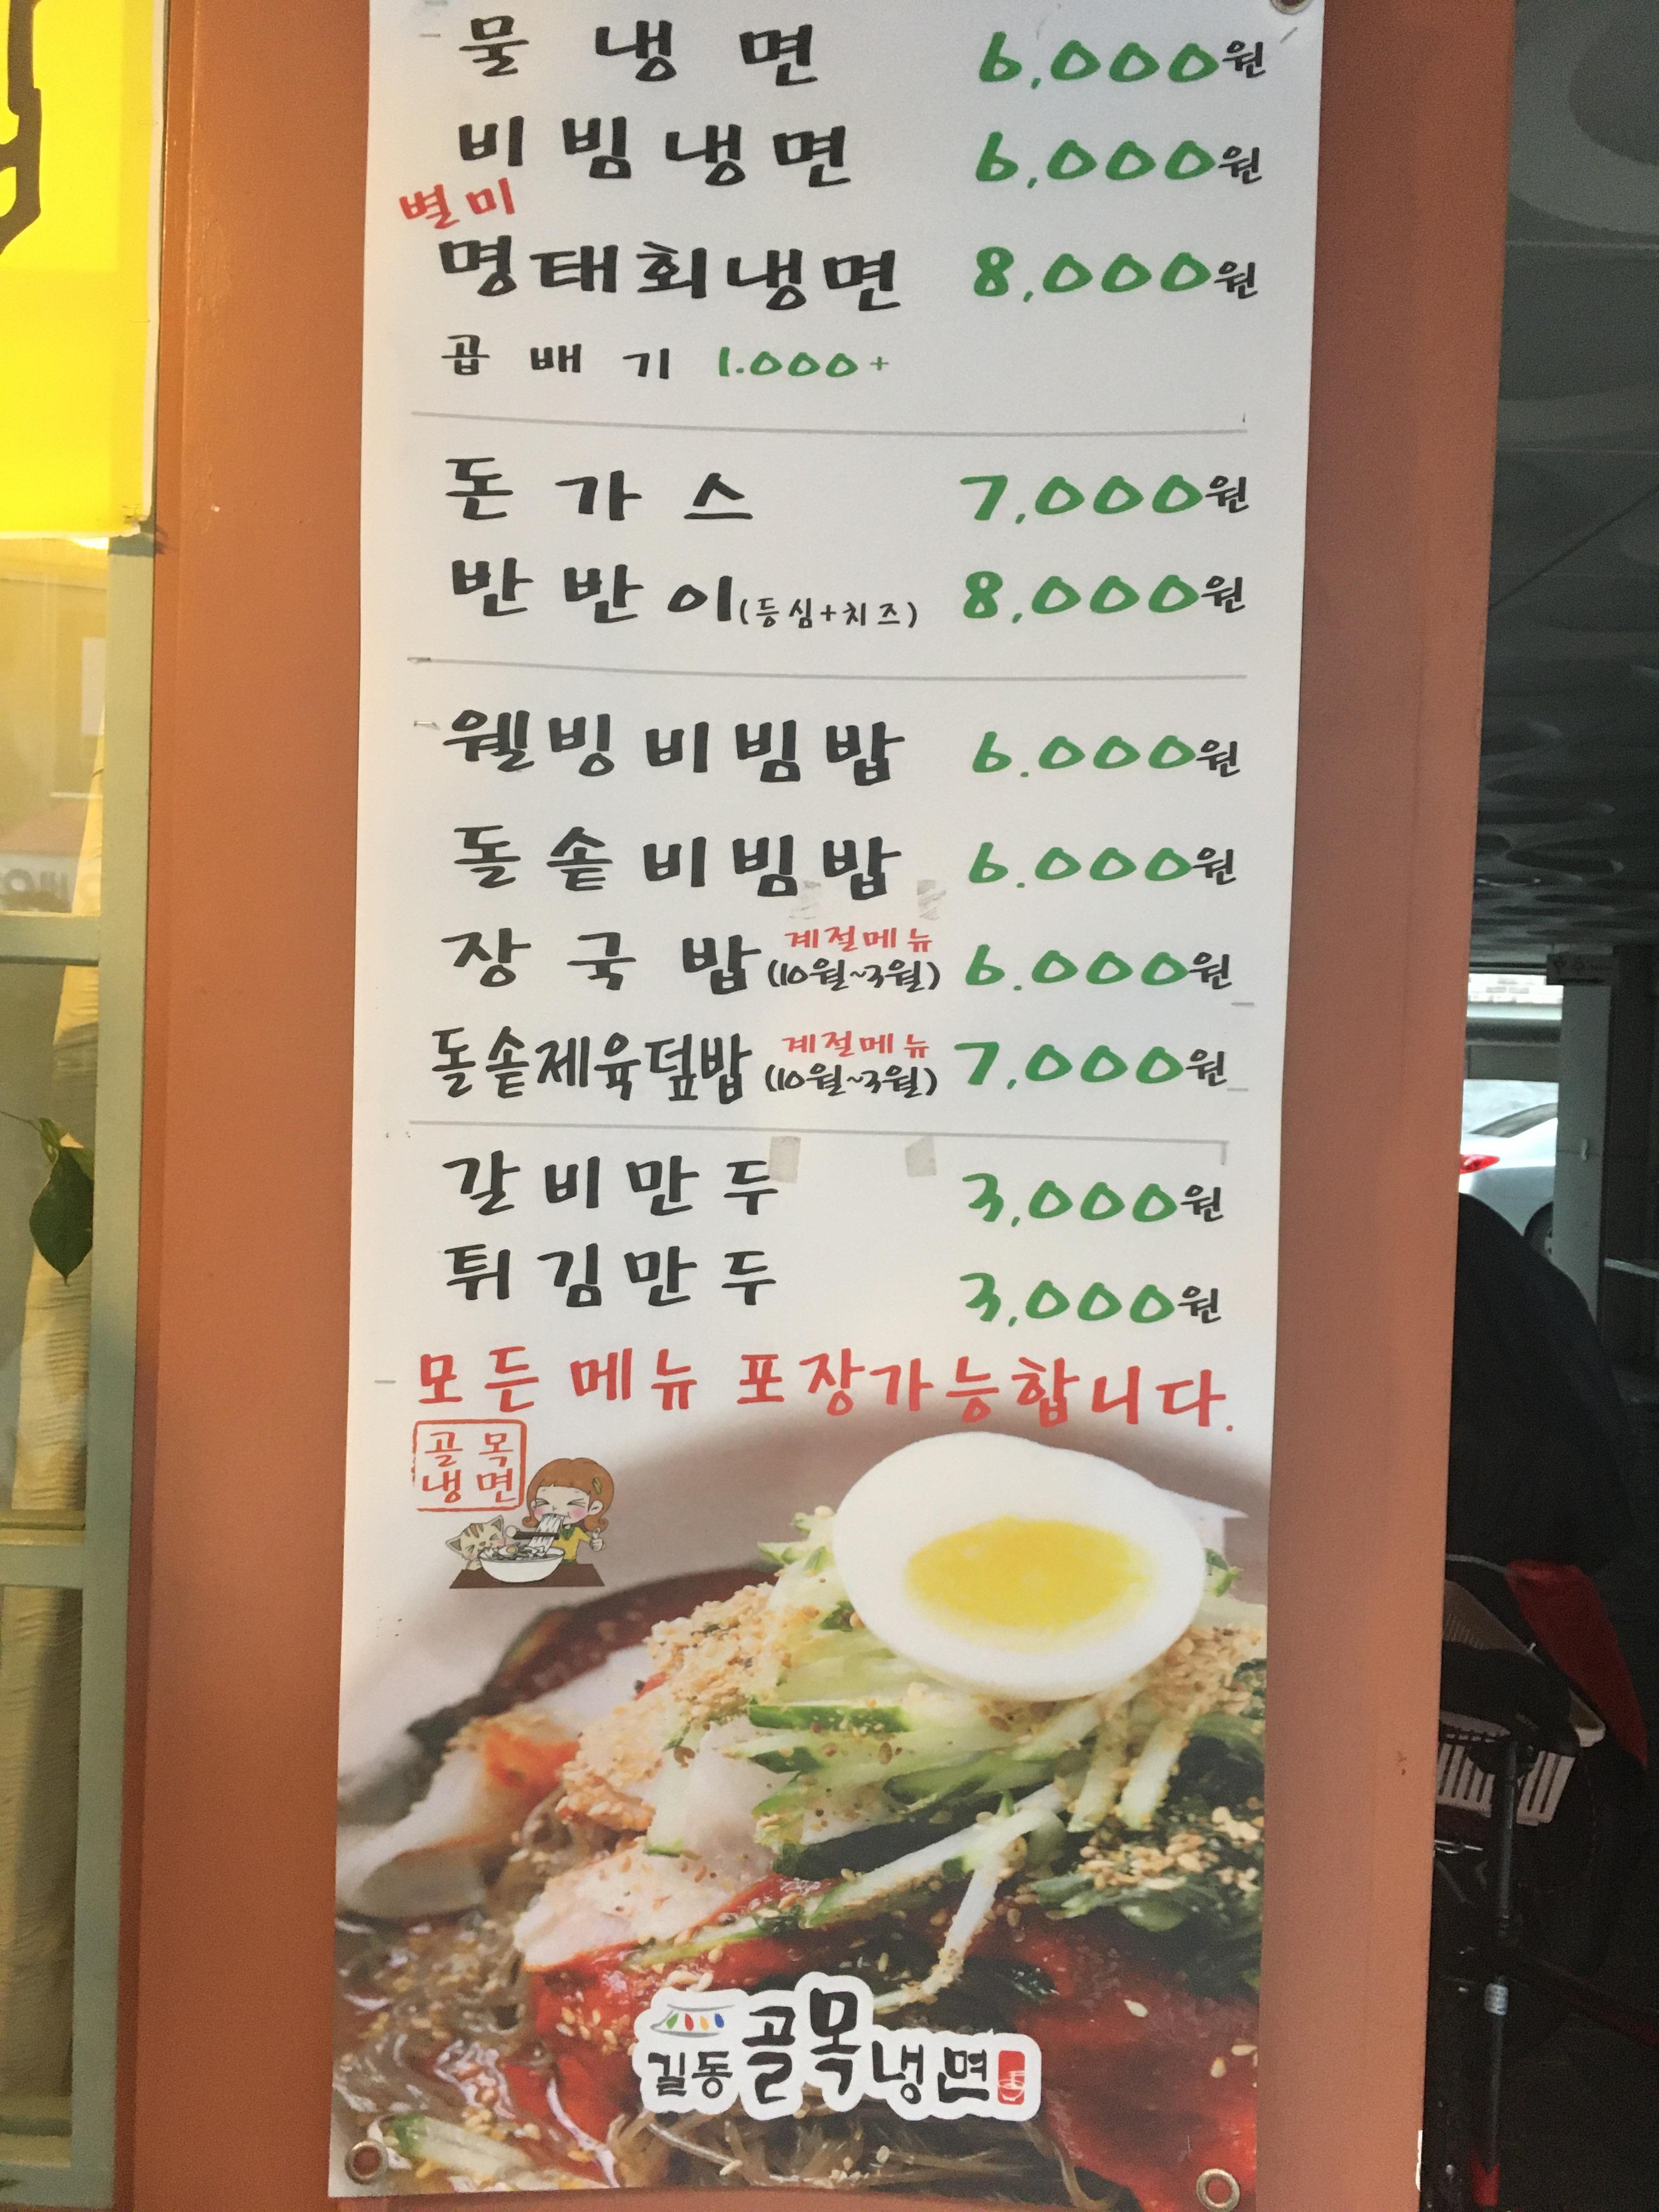 물냉면 6,000원
비빔냉면 6,000원
별미
명태회냉면 8,000원
곱배기 1.000+
돈가스 7,000원
반반이(등심+치즈) 8,000원
웰빙비빔밥 6.000원
돌솥비빔밥 6.000원
계절메뉴
장국밥(10월~3월) 6.000원
계절메뉴
돌솥제육덮밥(10월~3월) 7,000원
갈비만두 3,000원
튀김만두 3,000원
모든 메뉴 포장가능합니다.
골목
냉면
길동골목냉면